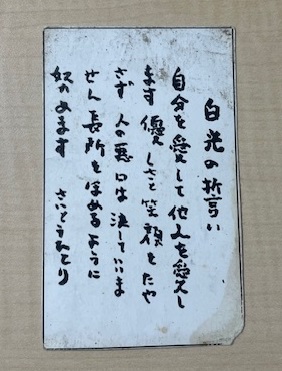 白光の誓い
自分を愛して他人を愛し
ます 優しさと笑顔をたや
さず 人の悪口は決していいま
せん 長所をほめるように
努めます
さいとうひとり